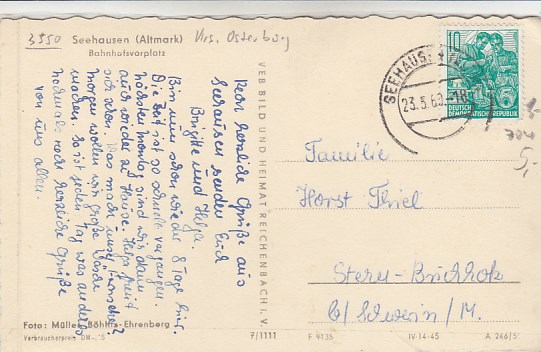 3550
Seehausen (Altmark)
Krs. Osterburg
Bahnhofsvorplatz
Recht herzliche Grüße aus
Seehausen senden Euch
Brigitte und Helga.
Bin nun schon wieder 8 Tage hier.
Die Zeit ist so schnell vergangen.
Nächsten Montag sind wir dann
auch wieder zu Hause. Helga freut
sich schon. Was macht unser
Morgen wollen wir große Wäsche
machen. So ist jeden Tag was anderes
nochmals recht herzliche Grüße
von uns allen.
Foto: Müller, Böhlitz-Ehrenberg
Verbraucherpreis DM
VEB BILD UND HEIMAT REICHENBACH I. V.
7/1111
SEEHAUSEN
23.5.60
10
DEUTSCHE
DEMOKRATISCHE REPUBLIK
5,-
Familie
Horst Thiel
Stern-Buchholz
b/ Schwerin/M.
F 9135
IV-14-45
A 246/5